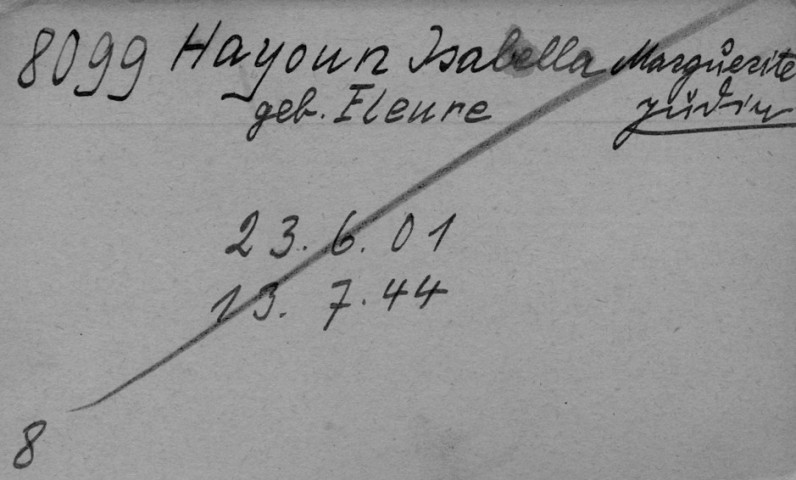 8099 Hayoun Isabella Marguerite
geb. Fleure Jüdin
23. 6. 01
13. 7. 44
8